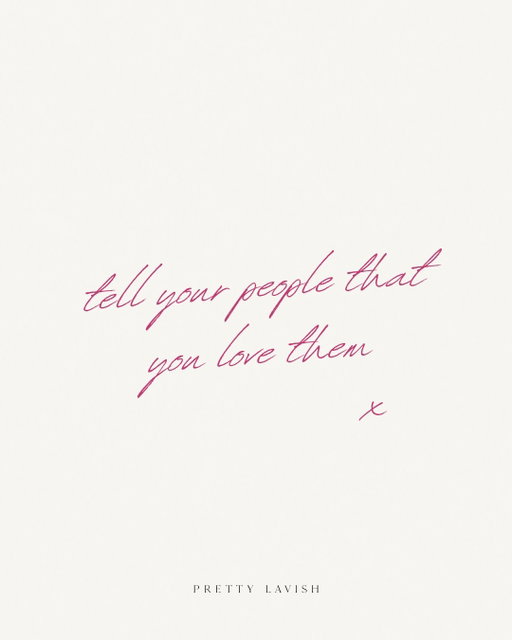 tell your people that
you love them
x
PRETTY LAVISH